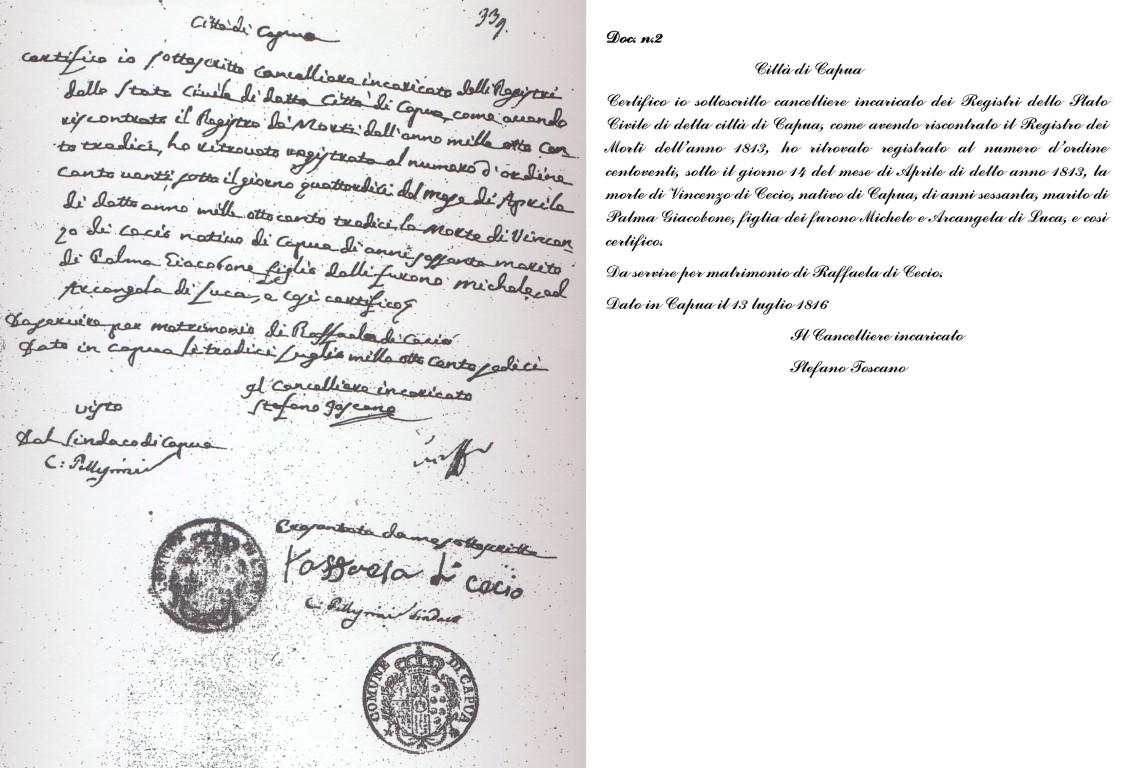 339.
Città di Capua
Certifico io sottoscritto Cancelliere incaricato delli Registri
dello Stato Civile di detta Città di Capua, come avendo
riscontrato il Registro de' Morti dell'anno mille otto cen-
to tredici, ho ritrovato registrato al numero d'ordine
cento venti, sotto il giorno quattordici del mese di Aprile
di detto anno mille otto cento tredici, la Morte di Vincen-
zo di Cecio nativo di Capua di anni sessanta marito
di Palma Giacobone figlio delli furono Michele, ed
Arcangela di Luca, e così certifico
Da servire per matrimonio di Raffaela di Cecio
Dato in Capua li tredici Luglio mille otto cento sedici
Il Cancelliere incaricato
Stefano Toscano
visto
Dal Sindaco di Capua
Presentata da me sottoscritta
di Cecio
Sindaco
COMUNE DI CAPUA
Doc. n.2
Città di Capua
Certifico io sottoscritto cancelliere incaricato dei Registri dello Stato
Civile di detta città di Capua, come avendo riscontrato il Registro dei
Morti dell'anno 1813, ho ritrovato registrato al numero d'ordine
centoventi, sotto il giorno 14 del mese di Aprile di detto anno 1813, la
morte di Vincenzo di Cecio, nativo di Capua, di anni sessanta, marito di
Palma Giacobone, figlia dei furono Michele e Arcangela di Luca, e così
certifico.
Da servire per matrimonio di Raffaela di Cecio.
Dato in Capua il 13 luglio 1816
Il Cancelliere incaricato
Stefano Toscano